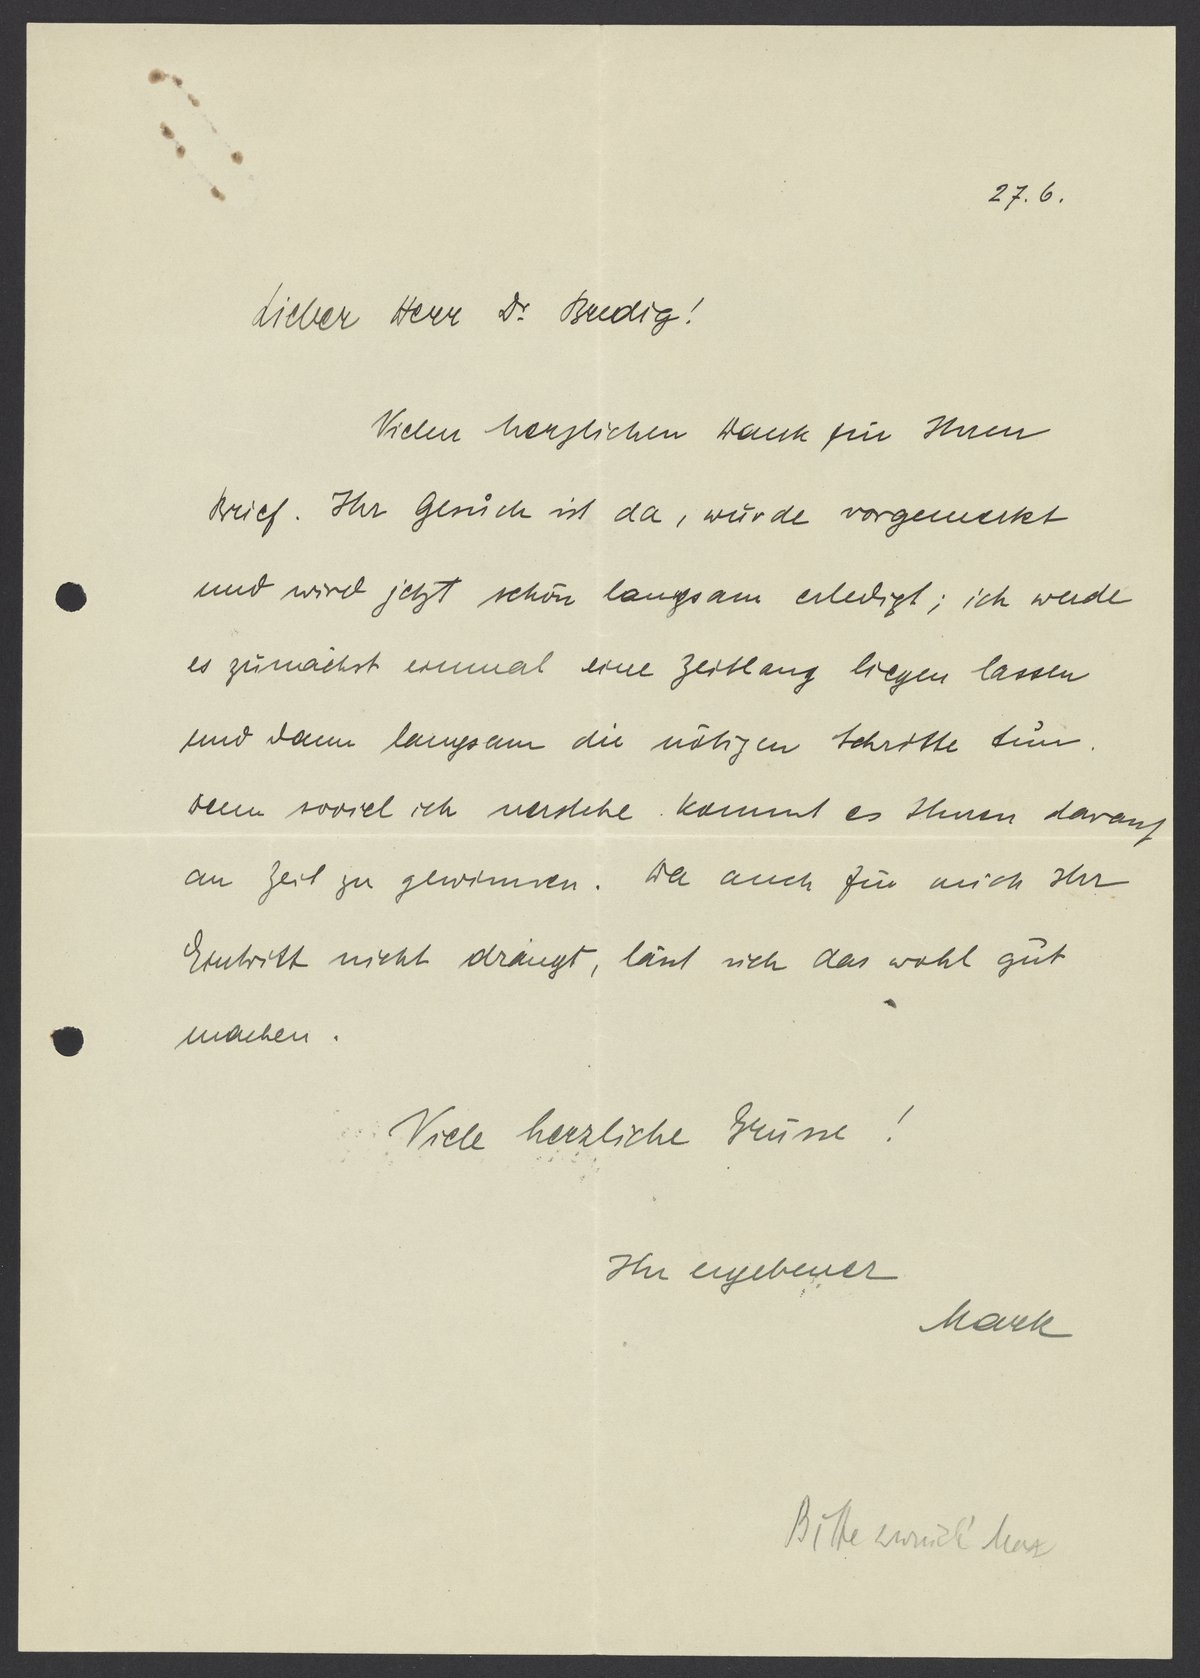 27.6.
Lieber Herr Dr. Bredig!
Vielen herzlichen Dank für Ihren
Brief. Ihr Gesuch ist da, wurde vorgemerkt
und wird jetzt schön langsam erledigt; ich werde
es zunächst einmal eine Zeitlang liegen lassen
und dann langsam die nötigen Schritte tun.
Denn soviel ich verstehe kommt es Ihnen darauf
an Zeit zu gewinnen. Da auch für mich Ihr
Eintritt nicht drängt, lässt sich das wohl gut
machen.
Viele herzliche Grüsse!
Ihr ergebener
Mark
Bitte zurück! Max